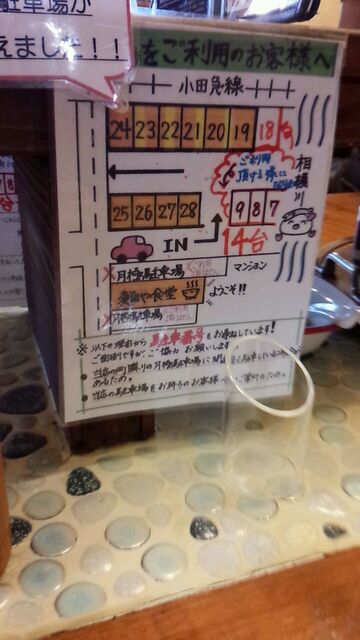 駐車場が
えました!!
をご利用のお客様へ
小田急線
24 23 22 21 20 19 18 台
ご利用
頂ける様に
相模川
25 26 27 28
9 8 7
14台
IN
月極駐車場
マンション
麺や食堂
ようこそ!!
月極駐車場
※以下の理由から駐車番号をお尋ねしています!
ご面倒ですが、ご協力お願いします
当店の両隣りの月極駐車場に
あるため。
当店の駐車場をお持ちのお客様